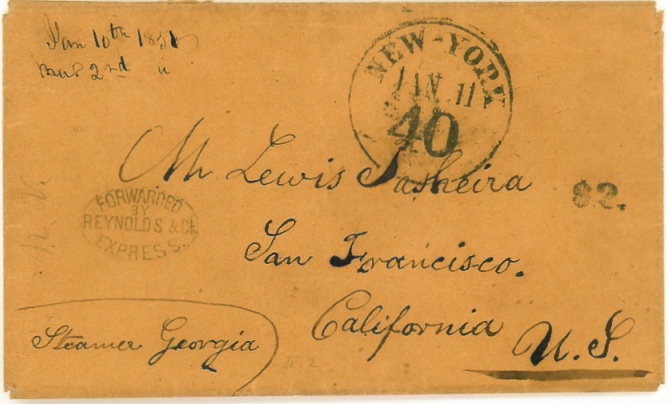 Jan 10th 1851
2nd "
NEW-YORK
JAN 11
40
Mr Lewis
$2.
FORWARDED
BY
REYNOLDS & CO
EXPRESS.
San Francisco.
California
U.S.
Steamer Georgia